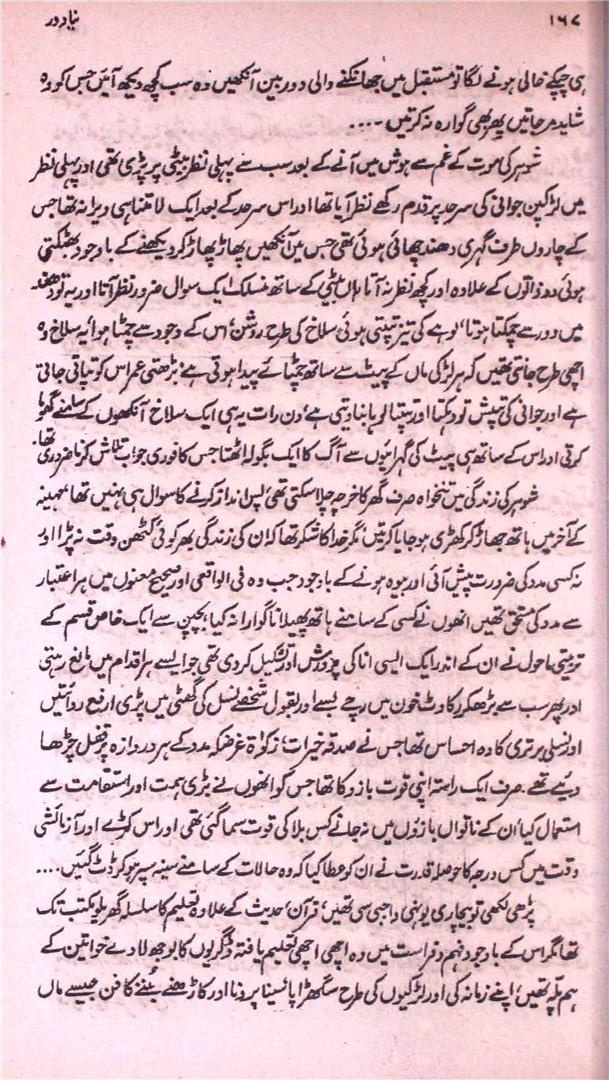 ۱۶۷
نیا دور
ہی چپکے خالی ہونے لگا تو مستقبل میں جھانکنے والی دوربین آنکھیں وہ سب کچھ دیکھ آئیں جس کو وہ
شاید مر جاتیں پھر بھی گوارہ نہ کرتیں ....
شوہر کی موت کے غم سے ہوش میں آنے کے بعد سب سے پہلی نظر بیٹی پر پڑی تھی اور پہلی نظر
میں لڑکپن جوانی کی سرحد پر قدم رکھے نظر آیا تھا اور اس سرحد کے بعد ایک لا متناہی ویرانہ تھا جس
کے چاروں طرف گہری دھند چھائی ہوئی تھی جس میں آنکھیں پھاڑ پھاڑ کر دیکھنے کے باوجود بھٹکتی
ہوئی دو ذاتوں کے علاوہ اور کچھ نظر نہ آتا ہاں بیٹی کے ساتھ منسلک ایک سوال ضرور نظر آتا اور یہ تو دھند
میں دور سے چمکتا ہوتا، لوہے کی تیز تپتی ہوئی سلاخ کی طرح روشن، اس کے وجود سے چمٹا ہوا یہ سلاخ وہ
اچھی طرح جانتی تھیں کہ ہر لڑکی ماں کے پیٹ سے ساتھ چمٹائے پیدا ہوتی ہے، بڑھتی عمر اس کو تپاتی جاتی
ہے اور جوانی کی تپش تو دہکتا اور تپتا لوہا بنا دیتی ہے، دن رات یہ ہی ایک سلاخ آنکھوں کے سامنے گھوما
کرتی اور اس کے ساتھ ہی پیٹ کی گہرائیوں سے آگ کا ایک بگولہ اٹھتا جس کا فوری جواب تلاش کرنا ضروری تھا۔
شوہر کی زندگی میں تنخواہ صرف گھر کا خرچہ چلا سکتی تھی، پس انداز کرنے کا سوال ہی نہیں تھا، مہینہ
کے آخر میں ہاتھ جھاڑ کر کھڑی ہو جایا کرتیں، مگر خدا کا شکر تھا کہ ان کی زندگی بھر کوئی کٹھن وقت نہ پڑا اور
نہ کسی مدد کی ضرورت پیش آئی اور بیوہ ہونے کے باوجود جب وہ فی الواقعی اور صحیح معنوں میں ہر اعتبار
سے مدد کی مستحق تھیں انھوں نے کسی کے سامنے ہاتھ پھیلانا گوارا نہ کیا، بچپن سے ایک خاص قسم کے
تربیتی ماحول نے ان کے اندر ایک ایسی انا کی پرورش اور تشکیل کر دی تھی جو ایسے ہر اقدام میں مانع رہتی
اور پھر سب سے بڑھکر رکاوٹ خون میں رچے بسے اور بقول شخصے نسل کی گھٹی میں پڑی ارفع روائتیں
اور نسلی برتری کا وہ احساس تھا جس نے صدقہ خیرات، زکوٰۃ غرضکہ مدد کے ہر دروازہ پر قفل چڑھا
دیئے تھے۔ صرف ایک راستہ اپنی قوت بازو کا تھا جس کو انھوں نے بڑی ہمت اور استقامت سے
استعمال کیا، ان کے ناتواں بازوں میں نہ جانے کس بلا کی قوت سما گئی تھی اور اس کڑے اور آزمائشی
وقت میں کس درجہ کا حوصلہ قدرت نے ان کو عطا کیا کہ وہ حالات کے سامنے سینہ سپر ہو کر ڈٹ گئیں....
پڑھی لکھی تو بیچاری یونہی واجبی سی تھیں، قرآن، حدیث کے علاوہ تعلیم کا سلسلہ گھریلو مکتب تک
تھا مگر اس کے باوجود فہم و فراست میں وہ اچھی اچھی تعلیم یافتہ ڈگریوں کا بوجھ لادے خواتین کے
ہم پلّہ تھیں، اپنے زمانہ کی اور لڑکیوں کی طرح سگھڑاپا، سینا پرونا اور کاڑھنے بُننے کا فن جیسے ماں